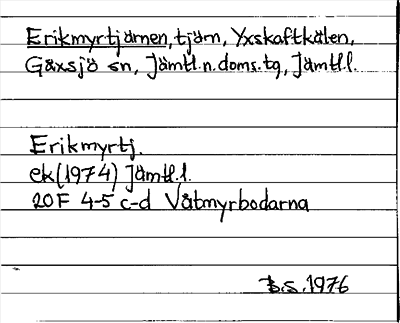 Erikmyrtjärnen, tjärn, Yxskaftkälen,
Gåxsjö sn, Jämtl.n.doms.tg, Jämtl.l.
Erikmyrtj.
ek(1974) Jämtl.l.
20F 4-5 c-d Våtmyrbodarna
B.S. 1976